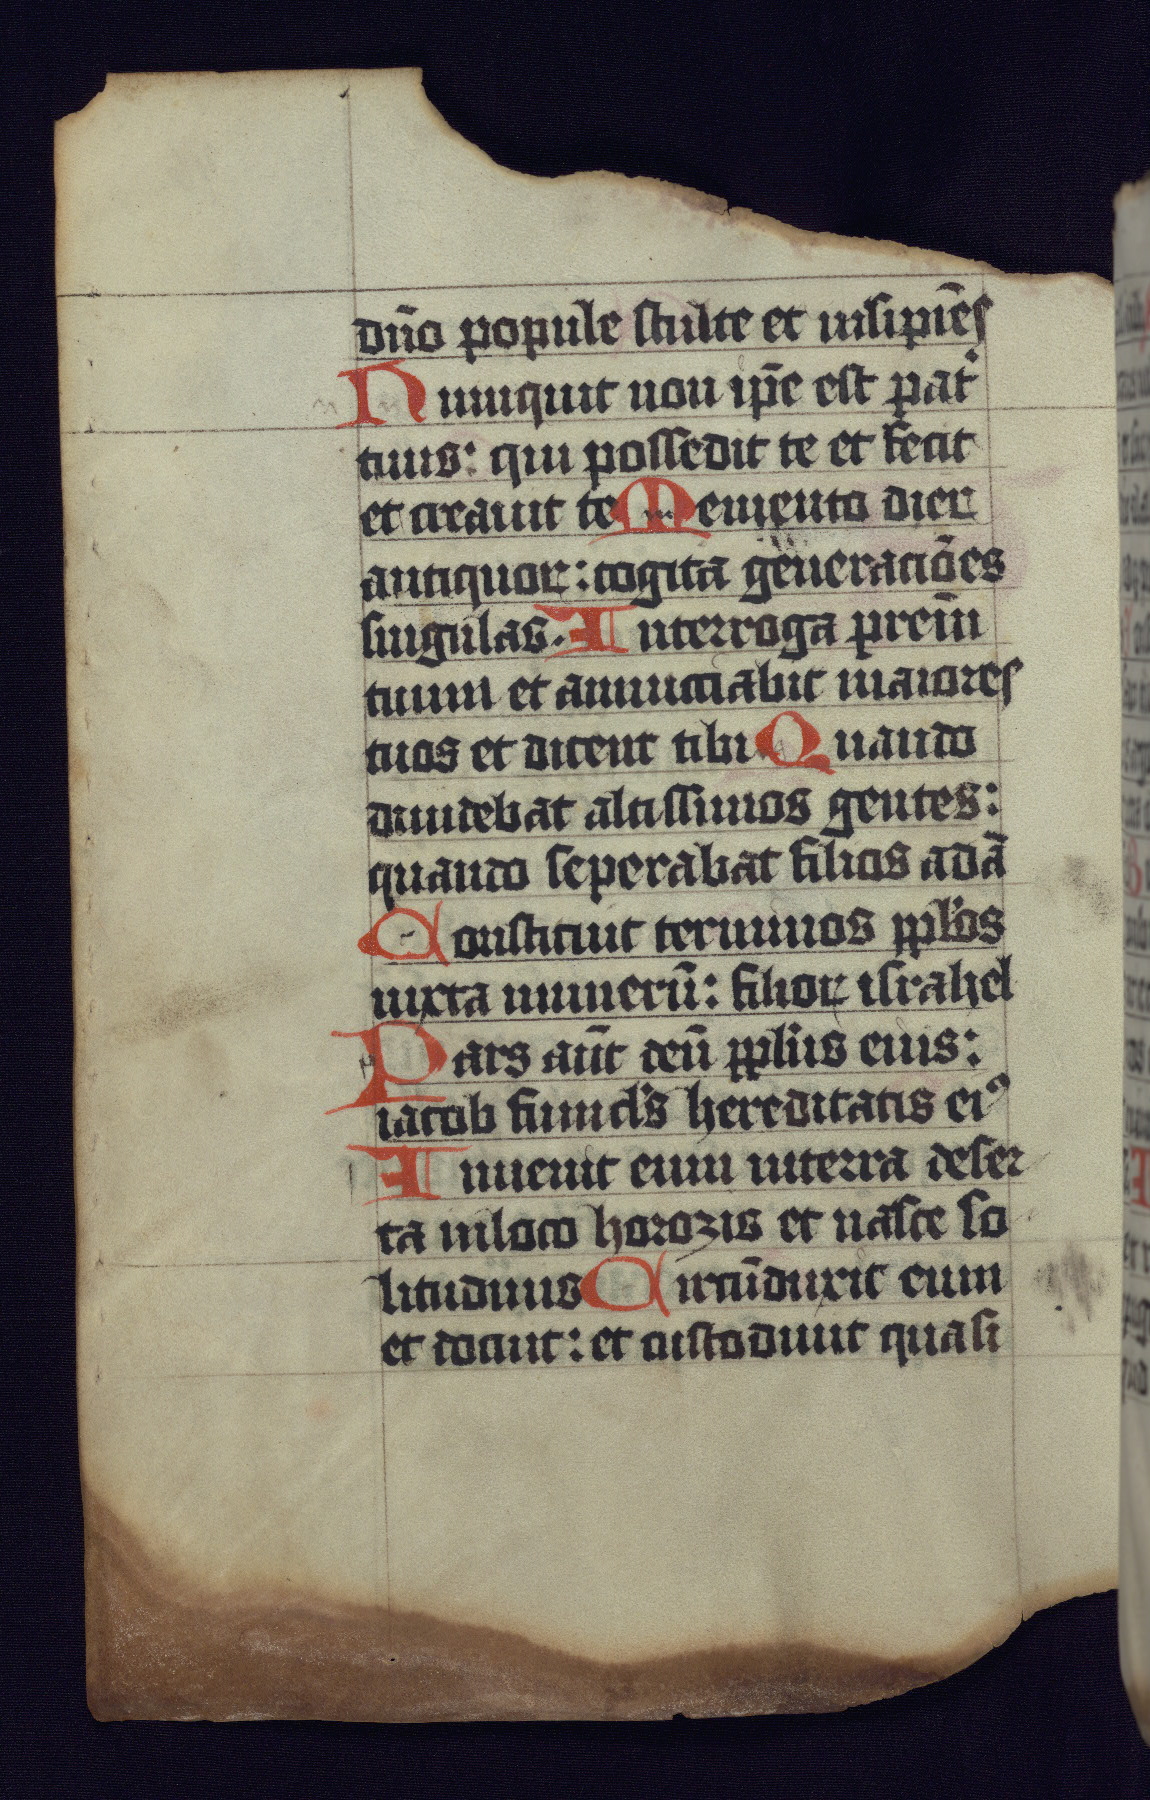 dn̄o popule stulte et insipiēs
Nunquit non ip̄e est pat᷒
tuus: qui possedit te et fecit
et creauit te Memento dieꝝ
antiquoꝝ: cogita generaciōes
singulas. Interroga prem̄
tuum et annunciabit maiores
tuos et dicent tibi Quando
diuidebat altissimos gentes:
quando seperabat filios adā
Constituit terminos pplo̓s
iuxta numerū: filioꝝ israhel
Pars aūt deū pplu̓s eius:
iacob funicl̓s hereditatis ei⁹
Inuenit eum interra deser
ta inloco horozis et uaste so
litudinis Circūduxit eum
et docuit: et custodiuit quasi